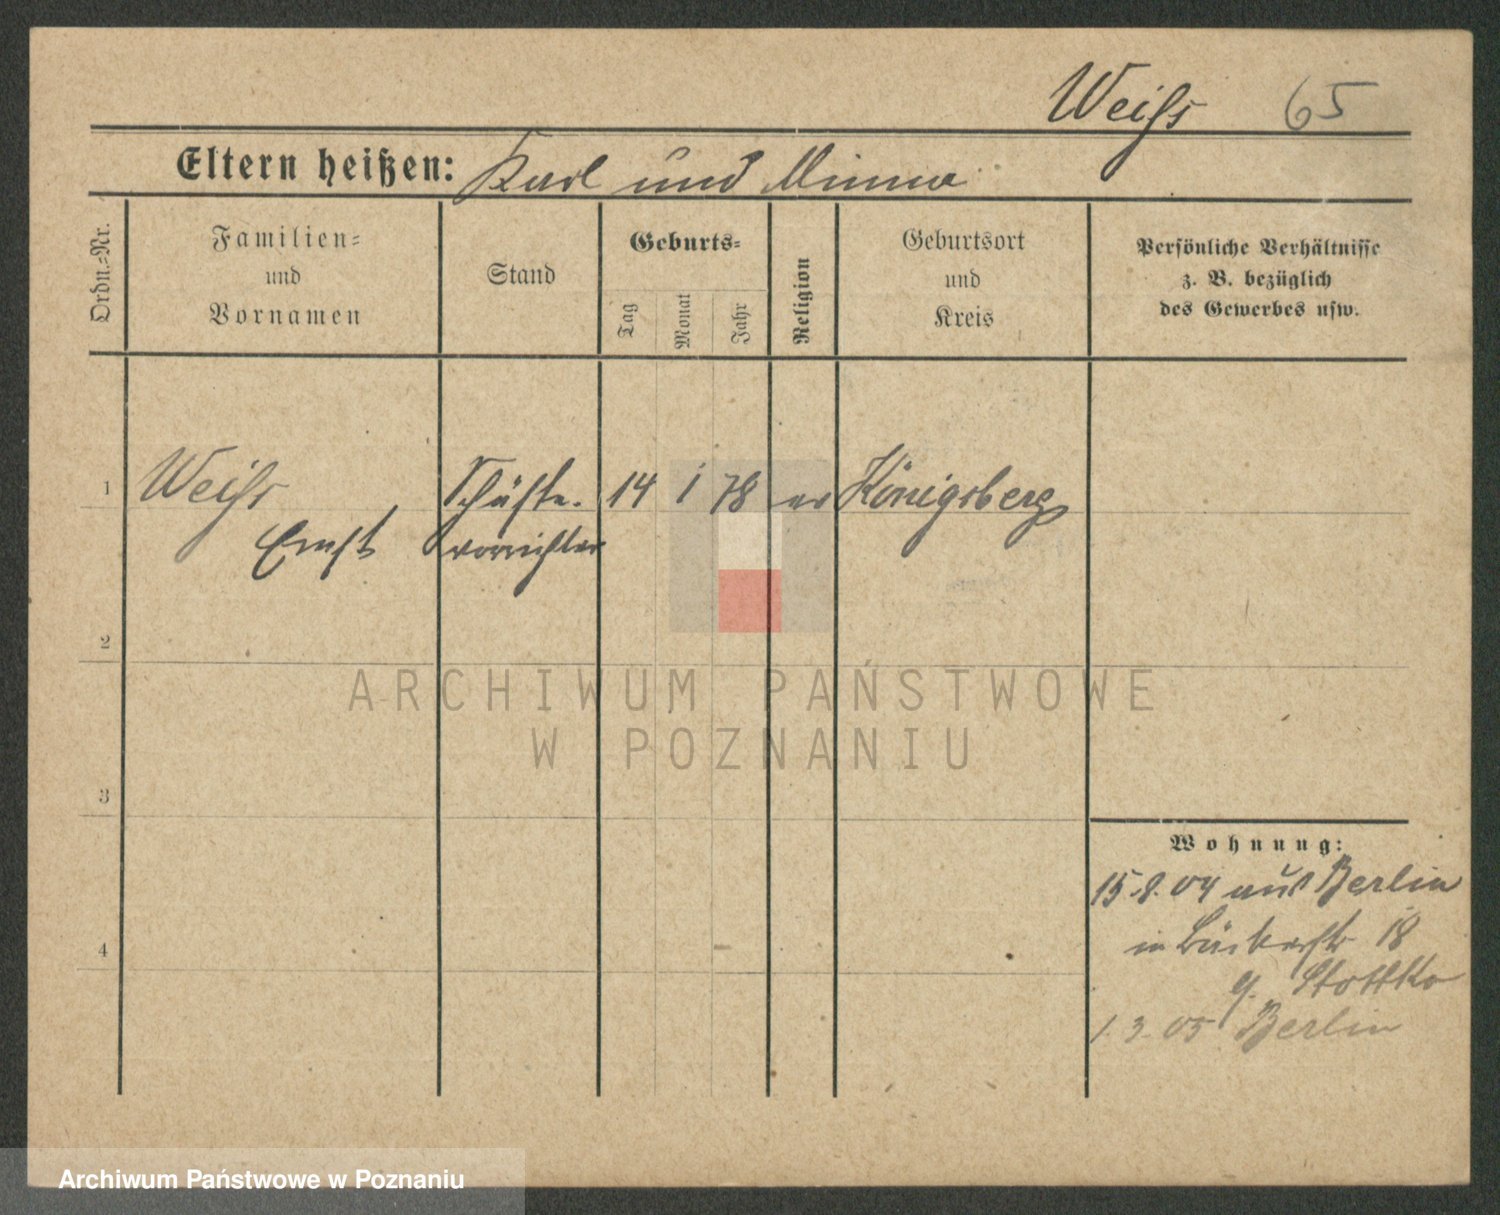 Weiſs 65
Eltern heißen: Karl und Minna
Ordn.-Nr.
Familien-
und
Vornamen
Stand
Geburts-
Tag
Monat
Jahr
Religion
Geburtsort
und
Kreis
Persönliche Verhältnisse
z. B. bezüglich
des Gewerbes usw.
1 Weiſs Schäfte- 14 1 78 ev Königsberg
Ernst vorrichter
2
3
4
Wohnung:
15.8.04 aus Berlin
in Bäckerstr 18
b. Stottko
1.3.05 Berlin
ARCHIWUM PAŃSTWOWE
W POZNANIU
Archiwum Państwowe w Poznaniu